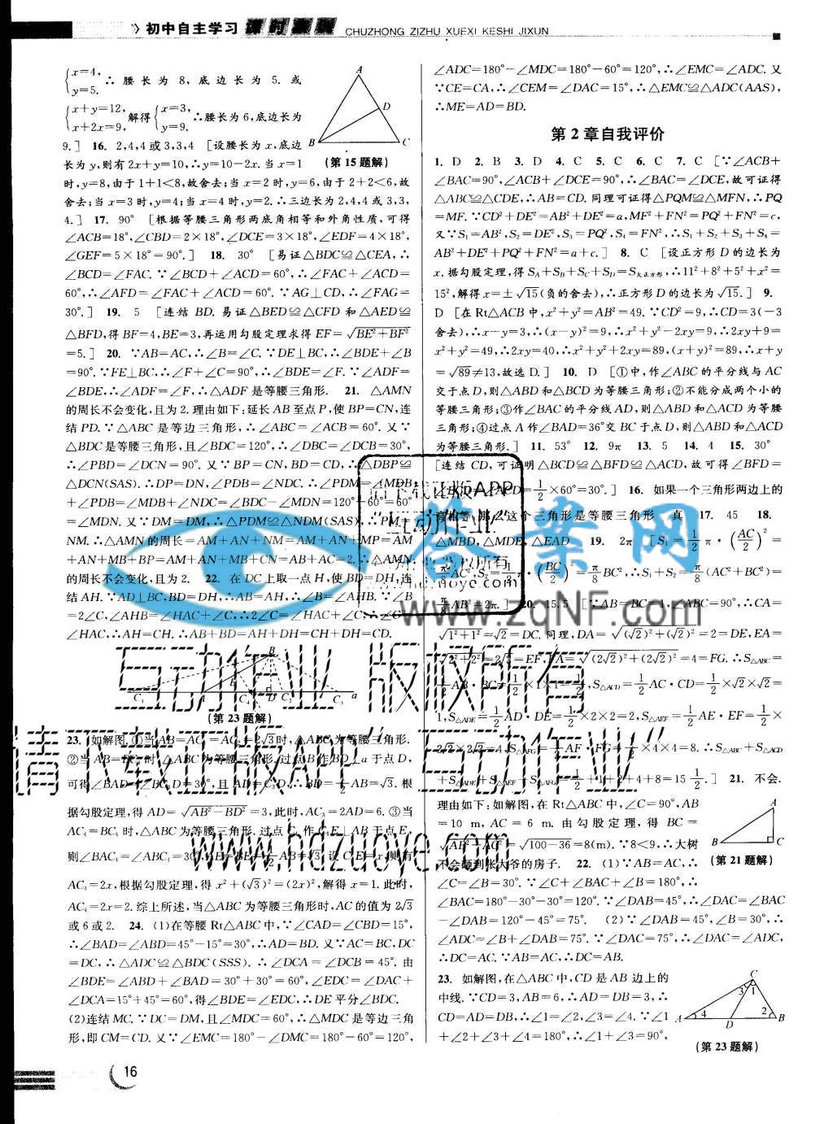 初中自主学习 课时集训
CHUZHONG ZIZHU XUEXI KESHI JIXUN
{x=4, y=5. ∴腰长为8,底边长为5.或
{x+y=12, x+2x=9, 解得{x=3, y=9. ∴腰长为6,底边长为
9.] 16. 2,4,4或3,3,4 [设腰长为x,底边
长为y,则有2x+y=10,∴y=10-2x.当x=1
(第15题解)
A
D
B
C
时,y=8,由于1+1<8,故舍去;当x=2时,y=6,由于2+2<6,故
舍去;当x=3时,y=4;当x=4时,y=2.∴三边长为2,4,4或3,3,
4.] 17. 90° [根据等腰三角形两底角相等和外角性质,可得
∠ACB=18°,∠CBD=2×18°,∠DCE=3×18°,∠EDF=4×18°,
∠GEF=5×18°=90°.] 18. 30° [易证△BDC≌△CEA,∴
∠BCD=∠FAC.∵∠BCD+∠ACD=60°,∴∠FAC+∠ACD=
60°,∴∠AFD=∠FAC+∠ACD=60°.∵AG⊥CD,∴∠FAG=
30°.] 19. 5 [连结BD.易证△BED≌△CFD和△AED≌
△BFD,得BF=4,BE=3,再运用勾股定理求得EF=√(BE²+BF²)
=5.] 20. ∵AB=AC,∴∠B=∠C.∵DE⊥BC,∴∠BDE+∠B
=90°.∵FE⊥BC,∴∠F+∠C=90°,∴∠BDE=∠F.∵∠ADF=
∠BDE,∴∠ADF=∠F,∴△ADF是等腰三角形. 21. △AMN
的周长不会变化,且为2.理由如下:延长AB至点P,使BP=CN,连
结PD.∵△ABC是等边三角形,∴∠ABC=∠ACB=60°.又∵
△BDC是等腰三角形,且∠BDC=120°,∴∠DBC=∠DCB=30°,
∴∠PBD=∠DCN=90°.又∵BP=CN,BD=CD,∴△DBP≌
△DCN(SAS).∴DP=DN,∠PDB=∠NDC.∴∠PDM=∠MDB
+∠PDB=∠MDB+∠NDC=∠BDC-∠MDN=120°-60°=60°
=∠MDN.又∵DM=DM,∴△PDM≌△NDM(SAS),∴PM=
NM.∴△AMN的周长=AM+AN+NM=AM+AN+MP=AM
+AN+MB+BP=AM+AN+MB+CN=AB+AC=2.∴△AMN
的周长不会变化,且为2. 22. 在DC上取一点H,使BD=DH,连
结AH.∵AD⊥BC,BD=DH,∴AB=AH,∴∠B=∠AHB.∵∠B
=2∠C,∠AHB=∠HAC+∠C,∴2∠C=∠HAC+∠C,∴∠C=
∠HAC,∴AH=CH.∴AB+BD=AH+DH=CH+DH=CD.
(第23题解)
23. 如解图.①当AB=AC=AC₁=2√3时,△ABC为等腰三角形.
可得∠BAD=∠BC₂D=30°,且AD=C₂D,∴BD=1/2AB=√3.根
据勾股定理,得AD=√(AB²-BD²)=3,此时,AC₃=2AD=6.③当
AC₄=BC₄时,△ABC为等腰三角形.过点C₄作C₄E⊥AB于点E,
AC₄=2x,根据勾股定理,得x²+(√3)²=(2x)²,解得x=1.此时,
AC₄=2x=2.综上所述,当△ABC为等腰三角形时,AC的值为2√3
或6或2. 24. (1)在等腰Rt△ABC中,∵∠CAD=∠CBD=15°,
∴∠BAD=∠ABD=45°-15°=30°,∴AD=BD.又∵AC=BC,DC
=DC,∴△ADC≌△BDC(SSS).∴∠DCA=∠DCB=45°.由
∠BDE=∠ABD+∠BAD=30°+30°=60°,∠EDC=∠DAC+
∠DCA=15°+45°=60°,得∠BDE=∠EDC,∴DE平分∠BDC.
(2)连结MC.∵DC=DM,且∠MDC=60°,∴△MDC是等边三角
形,即CM=CD.又∵∠EMC=180°-∠DMC=180°-60°=120°,
∠ADC=180°-∠MDC=180°-60°=120°,∴∠EMC=∠ADC.又
∵CE=CA,∴∠CEM=∠DAC=15°,∴△EMC≌△ADC(AAS),
∴ME=AD=BD.
第2章自我评价
1. D 2. B 3. D 4. C 5. C 6. C 7. C [∵∠ACB+
∠BAC=90°,∠ACB+∠DCE=90°,∴∠BAC=∠DCE,故可证得
△ABC≌△CDE,∴AB=CD.同理可证得△PQM≌△MFN,∴PQ
=MF.∵CD²+DE²=AB²+DE²=a,MF²+FN²=PQ²+FN²=c,
又∵S₁=AB²,S₂=DE²,S₃=PQ²,S₄=FN²,∴S₁+S₂+S₃+S₄=
AB²+DE²+PQ²+FN²=a+c.] 8. C [设正方形D的边长为
x.据勾股定理,得S_A+S_B+S_C+S_D=S大正方形,∴11²+8²+5²+x²=
15²,解得x=±√15(负的舍去),∴正方形D的边长为√15.] 9.
D [在Rt△ACB中,x²+y²=AB²=49.∵CD²=9,∴CD=3(-3
舍去),∴x-y=3,∴(x-y)²=9,∴x²+y²-2xy=9,∴2xy+9=
x²+y²=49,∴2xy=40,∴x²+y²+2xy=89,(x+y)²=89,∴x+y
=√89≠13,故选D.] 10. D [①中,作∠ABC的平分线与AC
交于点D,则△ABD和△BCD为等腰三角形;②不能分成两个小的
等腰三角形;③作∠BAC的平分线AD,则△ABD和△ACD为等腰
三角形;④过点A作∠BAD=36°交BC于点D,则△ABD和△ACD
为等腰三角形.] 11. 53° 12. 9π 13. 5 14. 4 15. 30°
[连结CD,可证明△BCD≌△BFD≌△ACD,故可得∠BFD=
1/2×60°=30°.] 16. 如果一个三角形两边上的
这个三角形是等腰三角形 真 17. 45 18.
△MBD,△MDE,△EAD 19. 2π [S₁=1/2π·(AC/2)²
=π/8AC²,S₂=1/2π·(BC/2)²=π/8BC²,∴S₁+S₂=π/8(AC²+BC²)=
π/8AB²=2π.] 20. 15.5 [∵AB=BC=1,∠ABC=90°,∴CA=
√(1²+1²)=√2=DC.同理,DA=√((√2)²+(√2)²)=2=DE,EA=
√(2²+2²)=2√2=EF,FA=√((2√2)²+(2√2)²)=4=FG.∴S△ABC=
1/2AB·BC=1/2×1×1=1/2,S△ACD=1/2AC·CD=1/2×√2×√2=
1,S△ADE=1/2AD·DE=1/2×2×2=2,S△AEF=1/2AE·EF=1/2×
2√2×2√2=4,S△AFG=1/2AF·FG=1/2×4×4=8.∴S△ABC+S△ACD
+S△ADE+S△AEF+S△AFG=1/2+1+2+4+8=15 1/2.] 21. 不会.
理由如下:如解图,在Rt△ABC中,∠C=90°,AB
=10 m,AC=6 m.由勾股定理,得BC=
√(AB²-AC²)=√(100-36)=8(m).∵8<9,∴大树
A
B
C
(第21题解)
不会碰到张大爷的房子. 22. (1)∵AB=AC,∴
∠C=∠B=30°.∵∠C+∠BAC+∠B=180°,∴
∠BAC=180°-30°-30°=120°.∵∠DAB=45°,∴∠DAC=∠BAC
-∠DAB=120°-45°=75°. (2)∵∠DAB=45°,∠B=30°,∴
∠ADC=∠B+∠DAB=75°.∵∠DAC=75°,∴∠DAC=∠ADC,
∴DC=AC.∵AB=AC,∴DC=AB.
23. 如解图,在△ABC中,CD是AB边上的
中线.∵CD=3,AB=6,∴AD=DB=3,∴
CD=AD=DB,∴∠1=∠2,∠3=∠4.∵∠1
+∠2+∠3+∠4=180°,∴∠1+∠3=90°,
C
A
D
B
(第23题解)
16
答案网
www.zqNF.com
互动作业 版权所有
请下载正版APP“互动作业”
www.hdzuoye.com